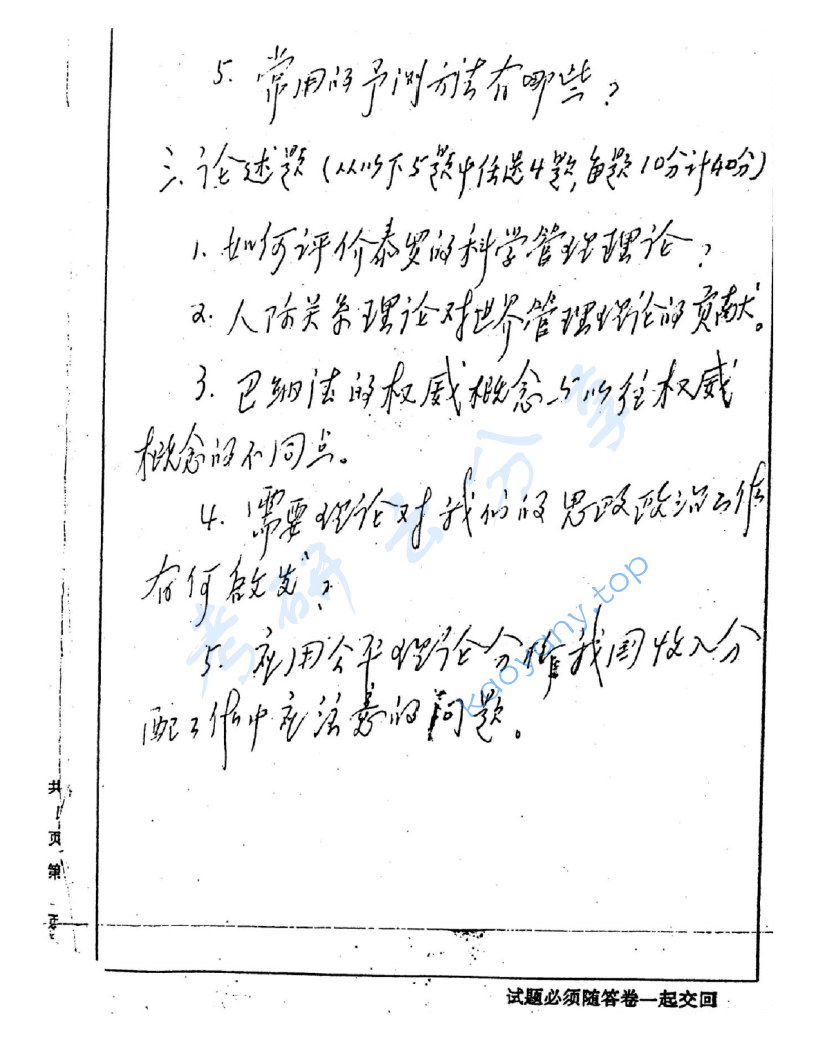 5. 常用的予测方法有哪些?
三. 论述题 (从以下5题中任选4题,每题10分计40分)
1. 如何评价泰罗的科学管理理论?
2. 人际关系理论对世界管理理论的贡献。
3. 巴纳法的权威概念与以往权威
概念的不同点。
4. 需要理论对我们的思想政治工作
有何启发?
5. 应用公平理论分析我国收入分
配工作中应注意的问题。
考研云分享
kaoyany.top
共
页
第
试题必须随答卷一起交回